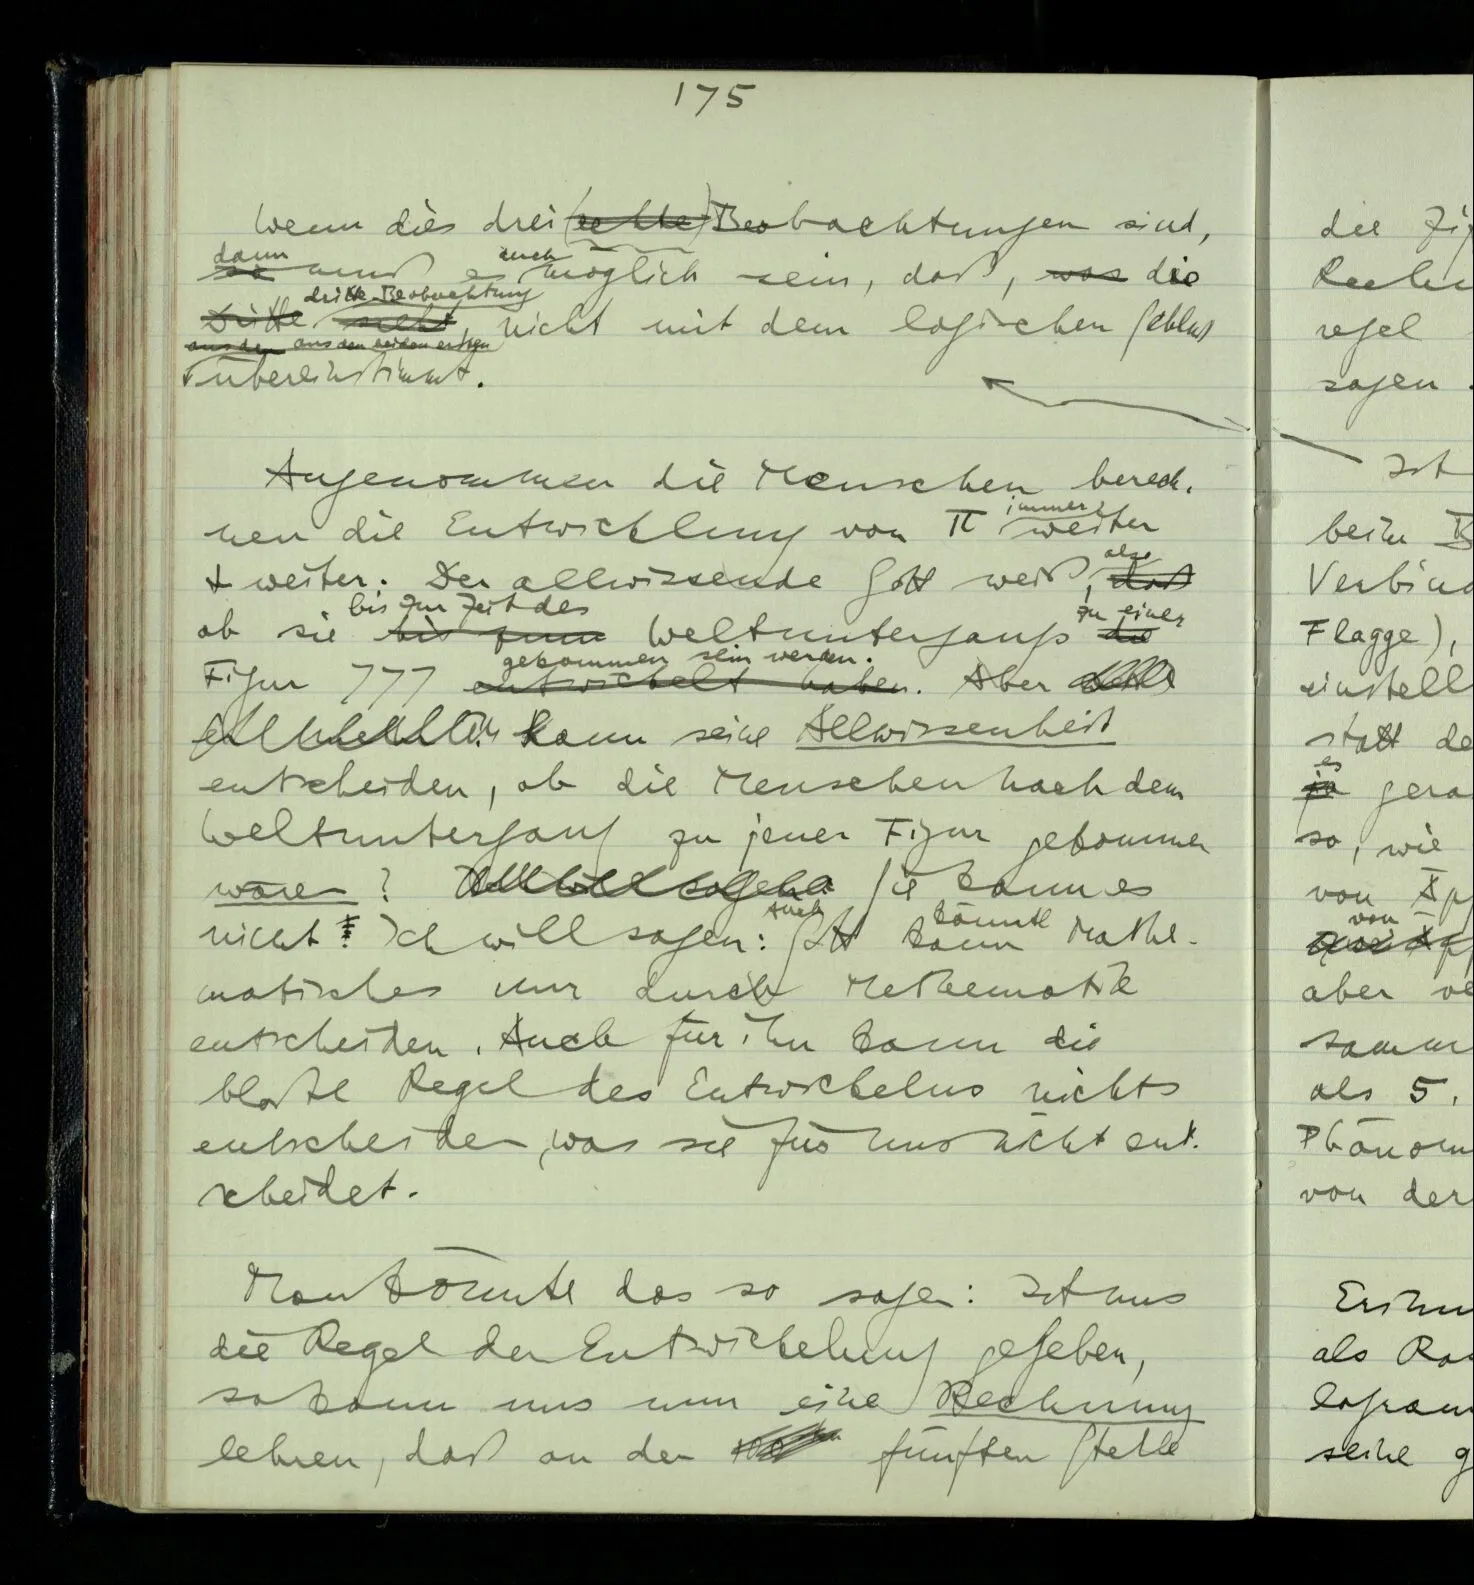 175
Wenn dies drei (echte) Beobachtungen sind,
dann auch
so muß es möglich sein, daß, was die
dritte Beobachtung
Dritte sieht, nicht mit dem logischen Schluß
aus den aus den beiden ersten
übereinstimmt.
Angenommen die Menschen berech-
immer
nen die Entwicklung von π weiter
& weiter. Der allwissende Gott weiß, daß
also
bis zur Zeit des zu einer
ob sie bis zum Weltuntergangs die
gekommen sein werden.
Figur 777 entwickelt haben. Aber
kann seine Allwissenheit
entscheiden, ob die Menschen nach dem
Weltuntergang zu jener Figur gekommen
wären? Sie kann es
nicht! Ich will sagen: Gott kann Mathe-
Auch könnte
matisches nur durch Mathematik
entscheiden. Auch für ihn kann die
bloße Regel des Entwickelns nichts
entscheiden, was sie für uns nicht ent-
scheidet.
Man könnte das so sagen: Ist uns
die Regel der Entwickelung gegeben,
so kann uns nun eine Rechnung
lehren, daß an der fünften Stelle
die
regel
sagen.
Ist
beim
Flagge),
einstell
statt de
es
ja gera
so, wie
von
von
aber ve
als 5.
Phänom
von der
Erinn
als
seine g